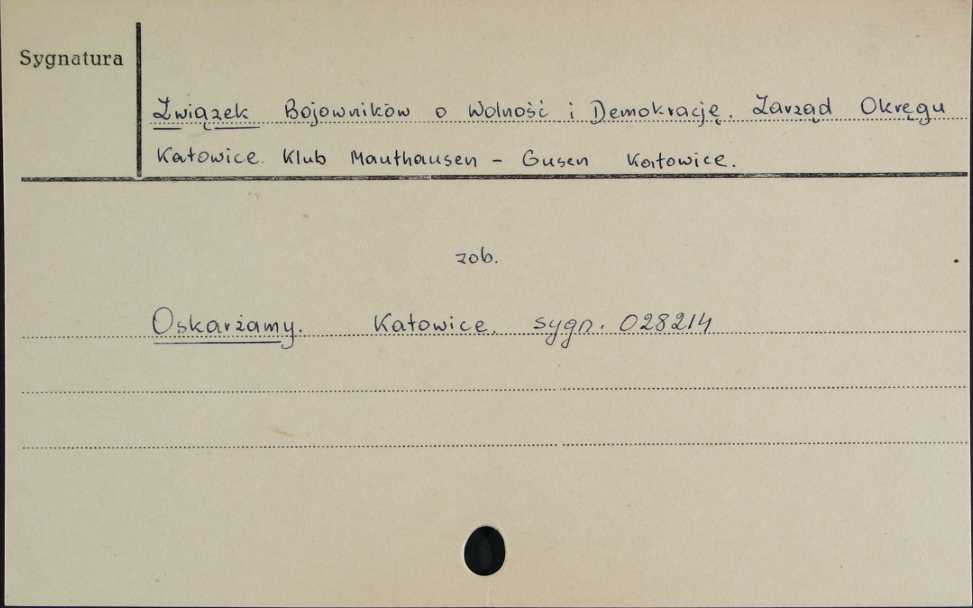 Sygnatura
Związek Bojowników o Wolność i Demokrację. Zarząd Okręgu
Katowice. Klub Mauthausen - Gusen Katowice.
zob.
Oskarżamy. Katowice. sygn. 028214